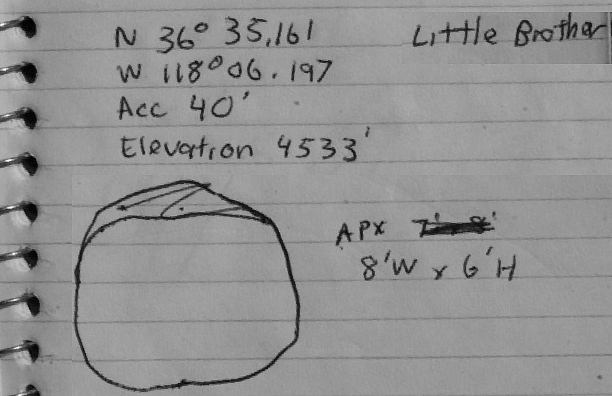 N 36° 35.161
Little Brother
W 118° 06.197
Acc 40'
Elevation 4533'
APX
8'W x 6'H